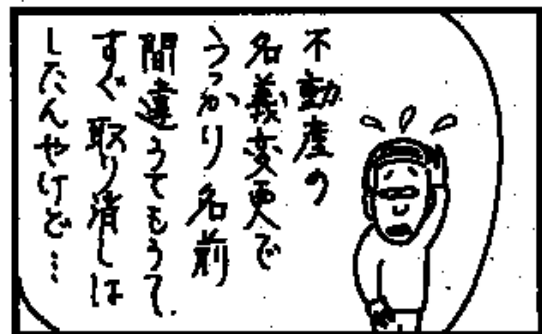 不動産の
名義変更で
うっかり名前
間違うてもうて、
すぐ取り消しは
したんやけど…